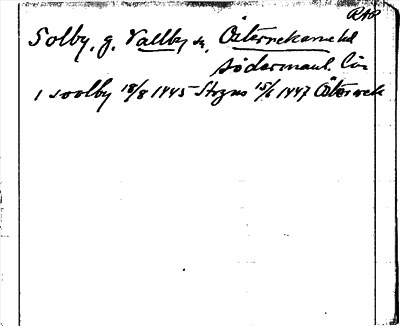 RAP
Solby, g. Vallby sn, Österrekarne hd
Södermanl. län
i soolby 18/8 1445 Strgns 15/6 1447 Österrek